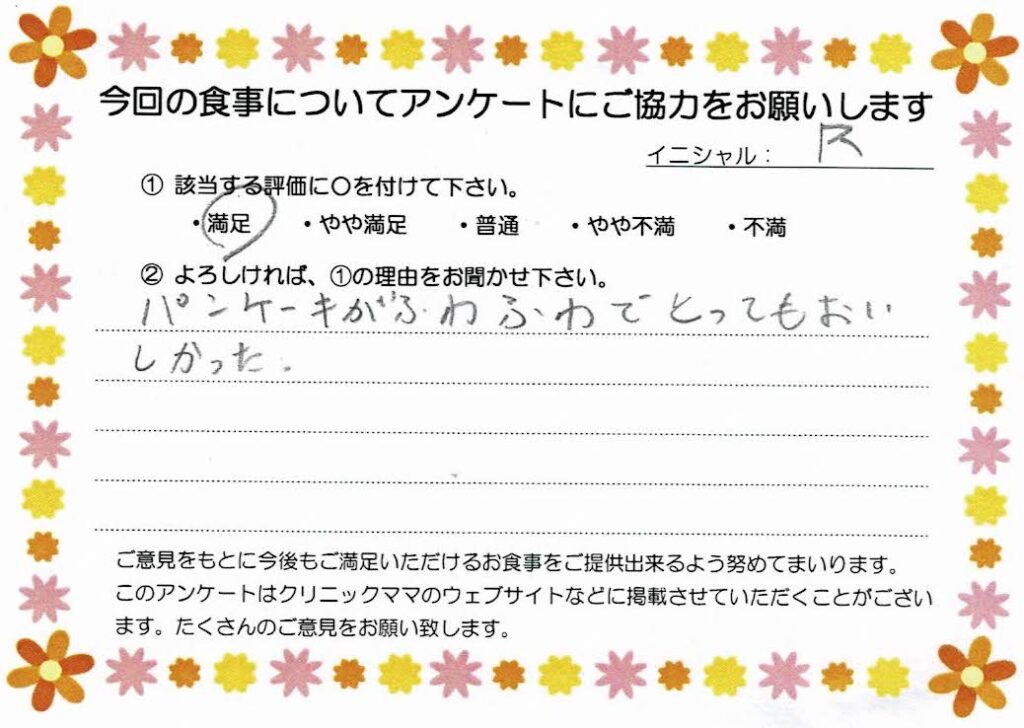 今回の食事についてアンケートにご協力をお願いします
イニシャル：
① 該当する評価に〇を付けて下さい。
・満足 ・やや満足 ・普通 ・やや不満 ・不満
② よろしければ、①の理由をお聞かせ下さい。
パンケーキがふわふわでとってもおい
しかった。
ご意見をもとに今後もご満足いただけるお食事をご提供出来るよう努めてまいります。
このアンケートはクリニックママのウェブサイトなどに掲載させていただくことがござい
ます。たくさんのご意見をお願い致します。